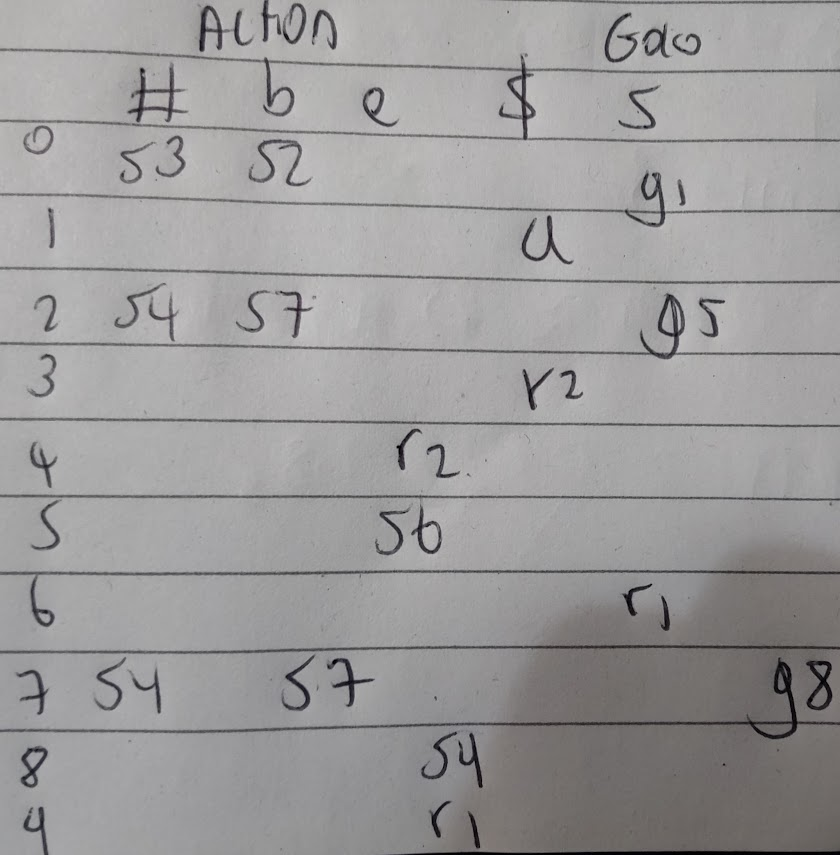 Action Goto
# b e $ S
0 S3 S2 g1
1 a
2 S4 S7 g5
3 r2
4 r2
5 S6
6 r1
7 S4 S7 g8
8 S9
9 r1